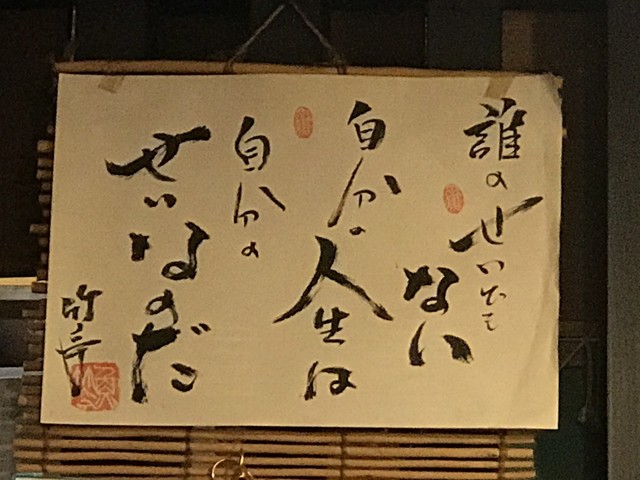 誰のせいでも
ない
自分の人生は
自分の
せいなのだ